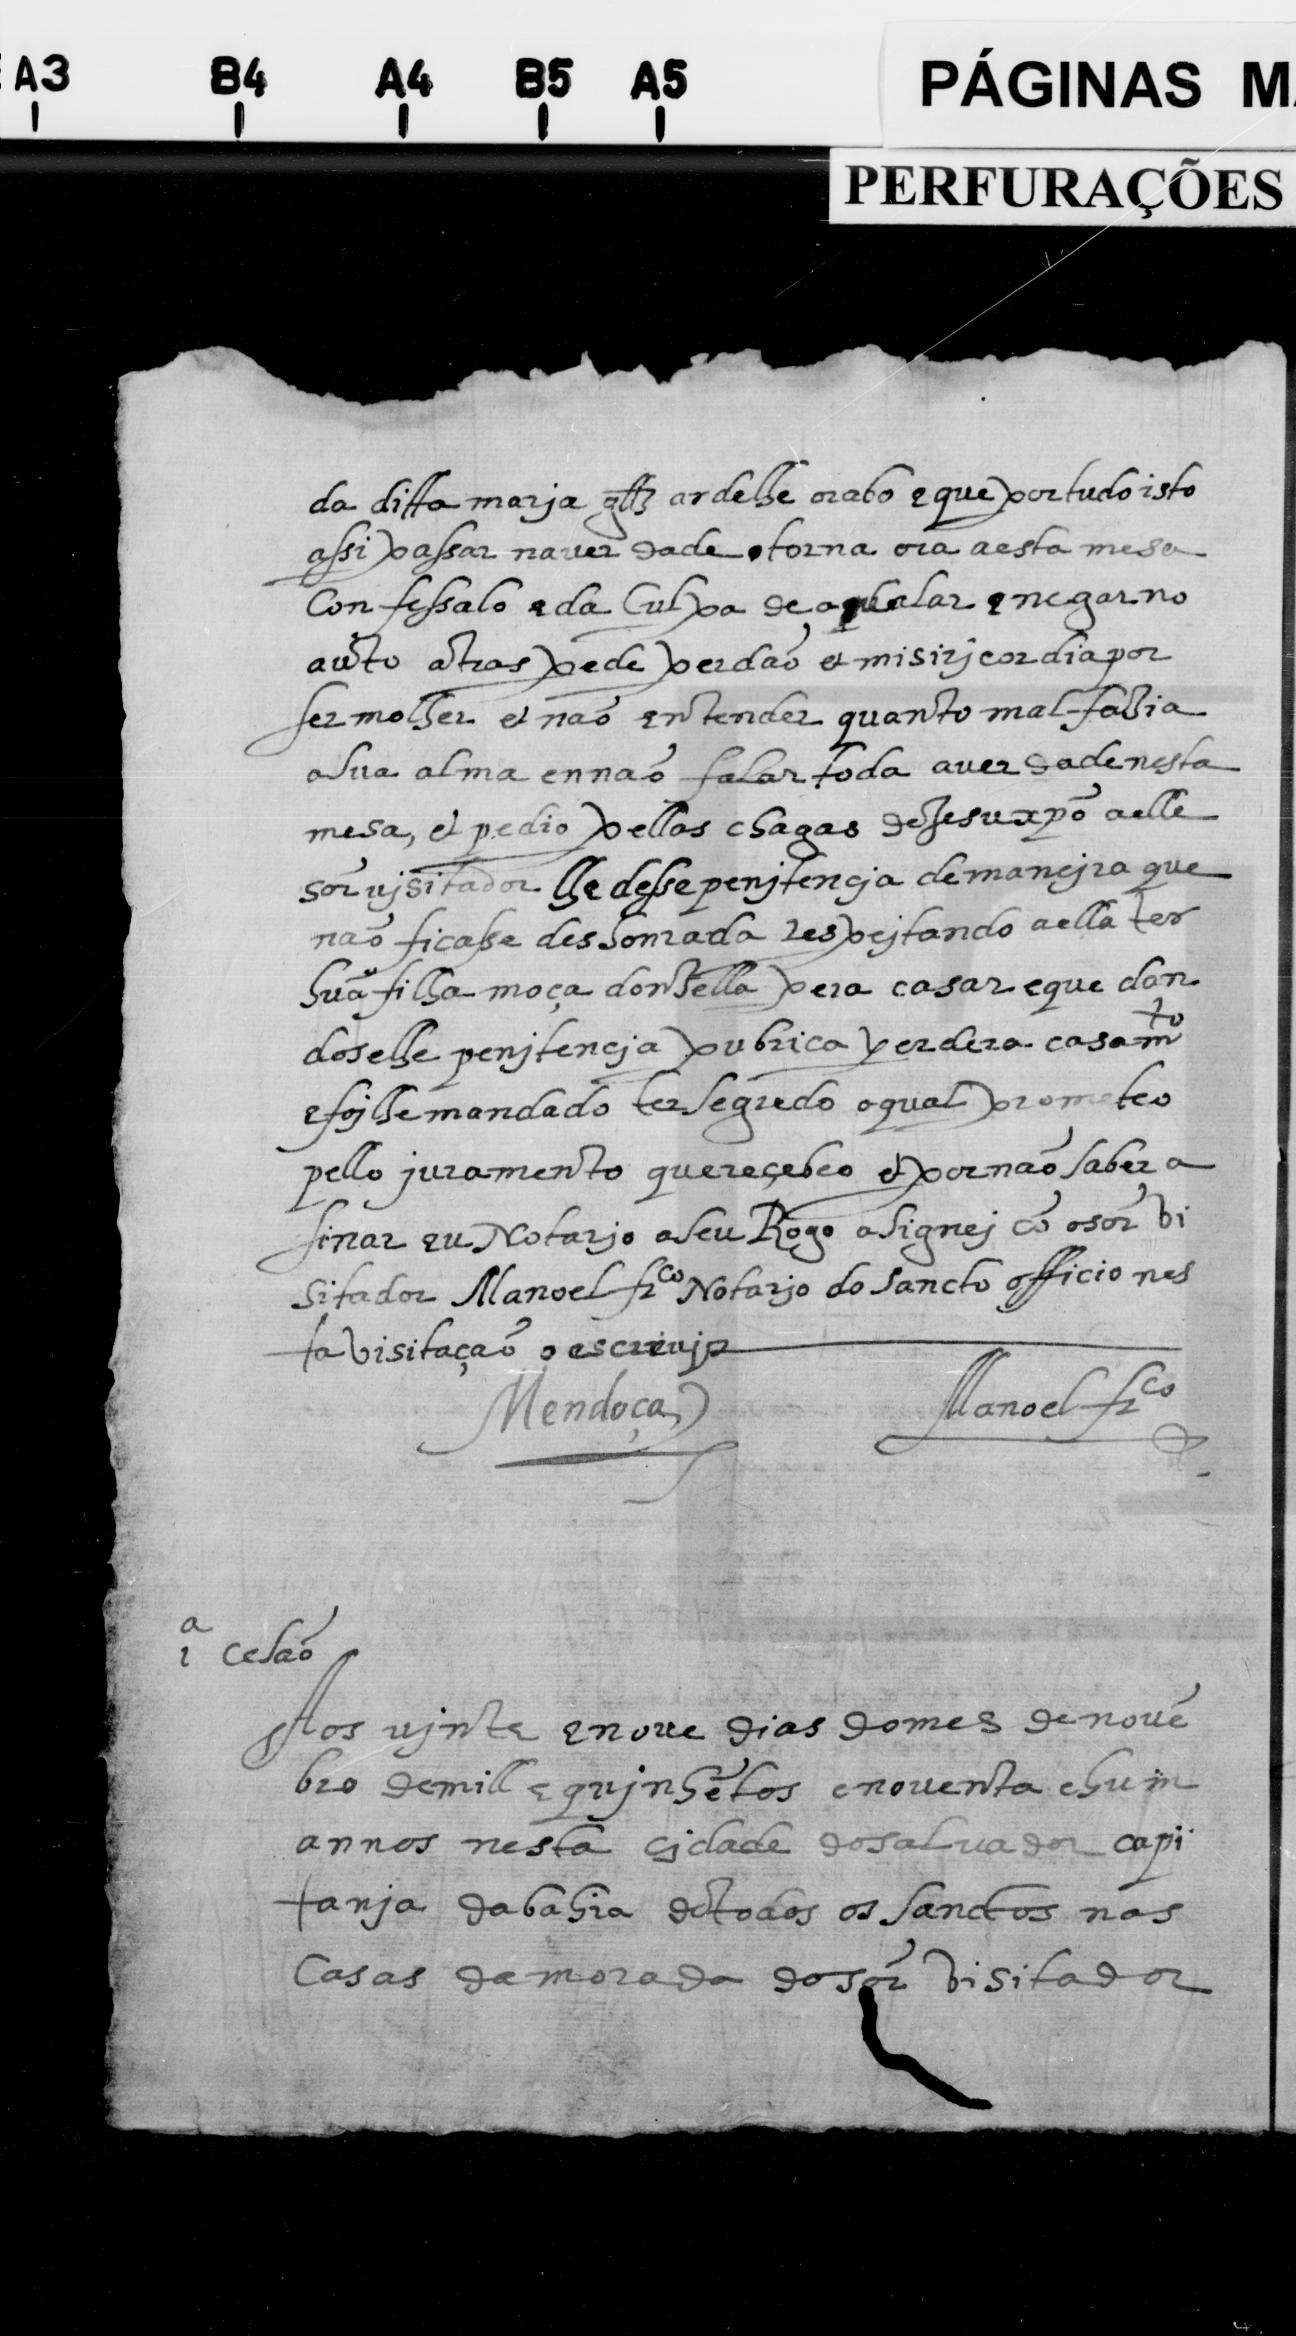 A3 B4 A4 B5 A5
PÁGINAS
PERFURAÇÕES
da ditta marja glz ardelhe orabo e que por tudo isto
assi passar na uerdade torna ora a esta mesa
Confessalo e da Culpa de a calar e negar no
auto atras pede perdaõ et misirjcordia por
ser molher et naõ entender quanto mal fazia
a sua alma en naõ falar toda a uerdade nesta
mesa, et pedio pellas chagas de Jesu xpõ a elle
sõr ujsitador lhe desse penjtencja de manejra que
naõ ficasse deshonrada respejtando a ella ter
huã filha moça donzella pera casar e que dan
doselhe penjtencja pubrica perdera casamto
e fojlhe mandado ter segredo o qual prometeo
pello juramento que reçebeo et por naõ saber a
sinar eu Notarjo a seu Rogo asignej cõ o sõr Vi
sitador Manoel frco Notarjo do sancto officio nes
ta Visitaçaõ o escreuj
Mendoça Manoel frco
1a Cesaõ
Aos ujnte e noue dias do mes de nouẽ
bro de mill e qujnhẽtos e nouenta e hum
annos nesta cjdade do saluador capi
tanja da bahia de todos os sanctos nas
Casas da morada do sõr Visitador